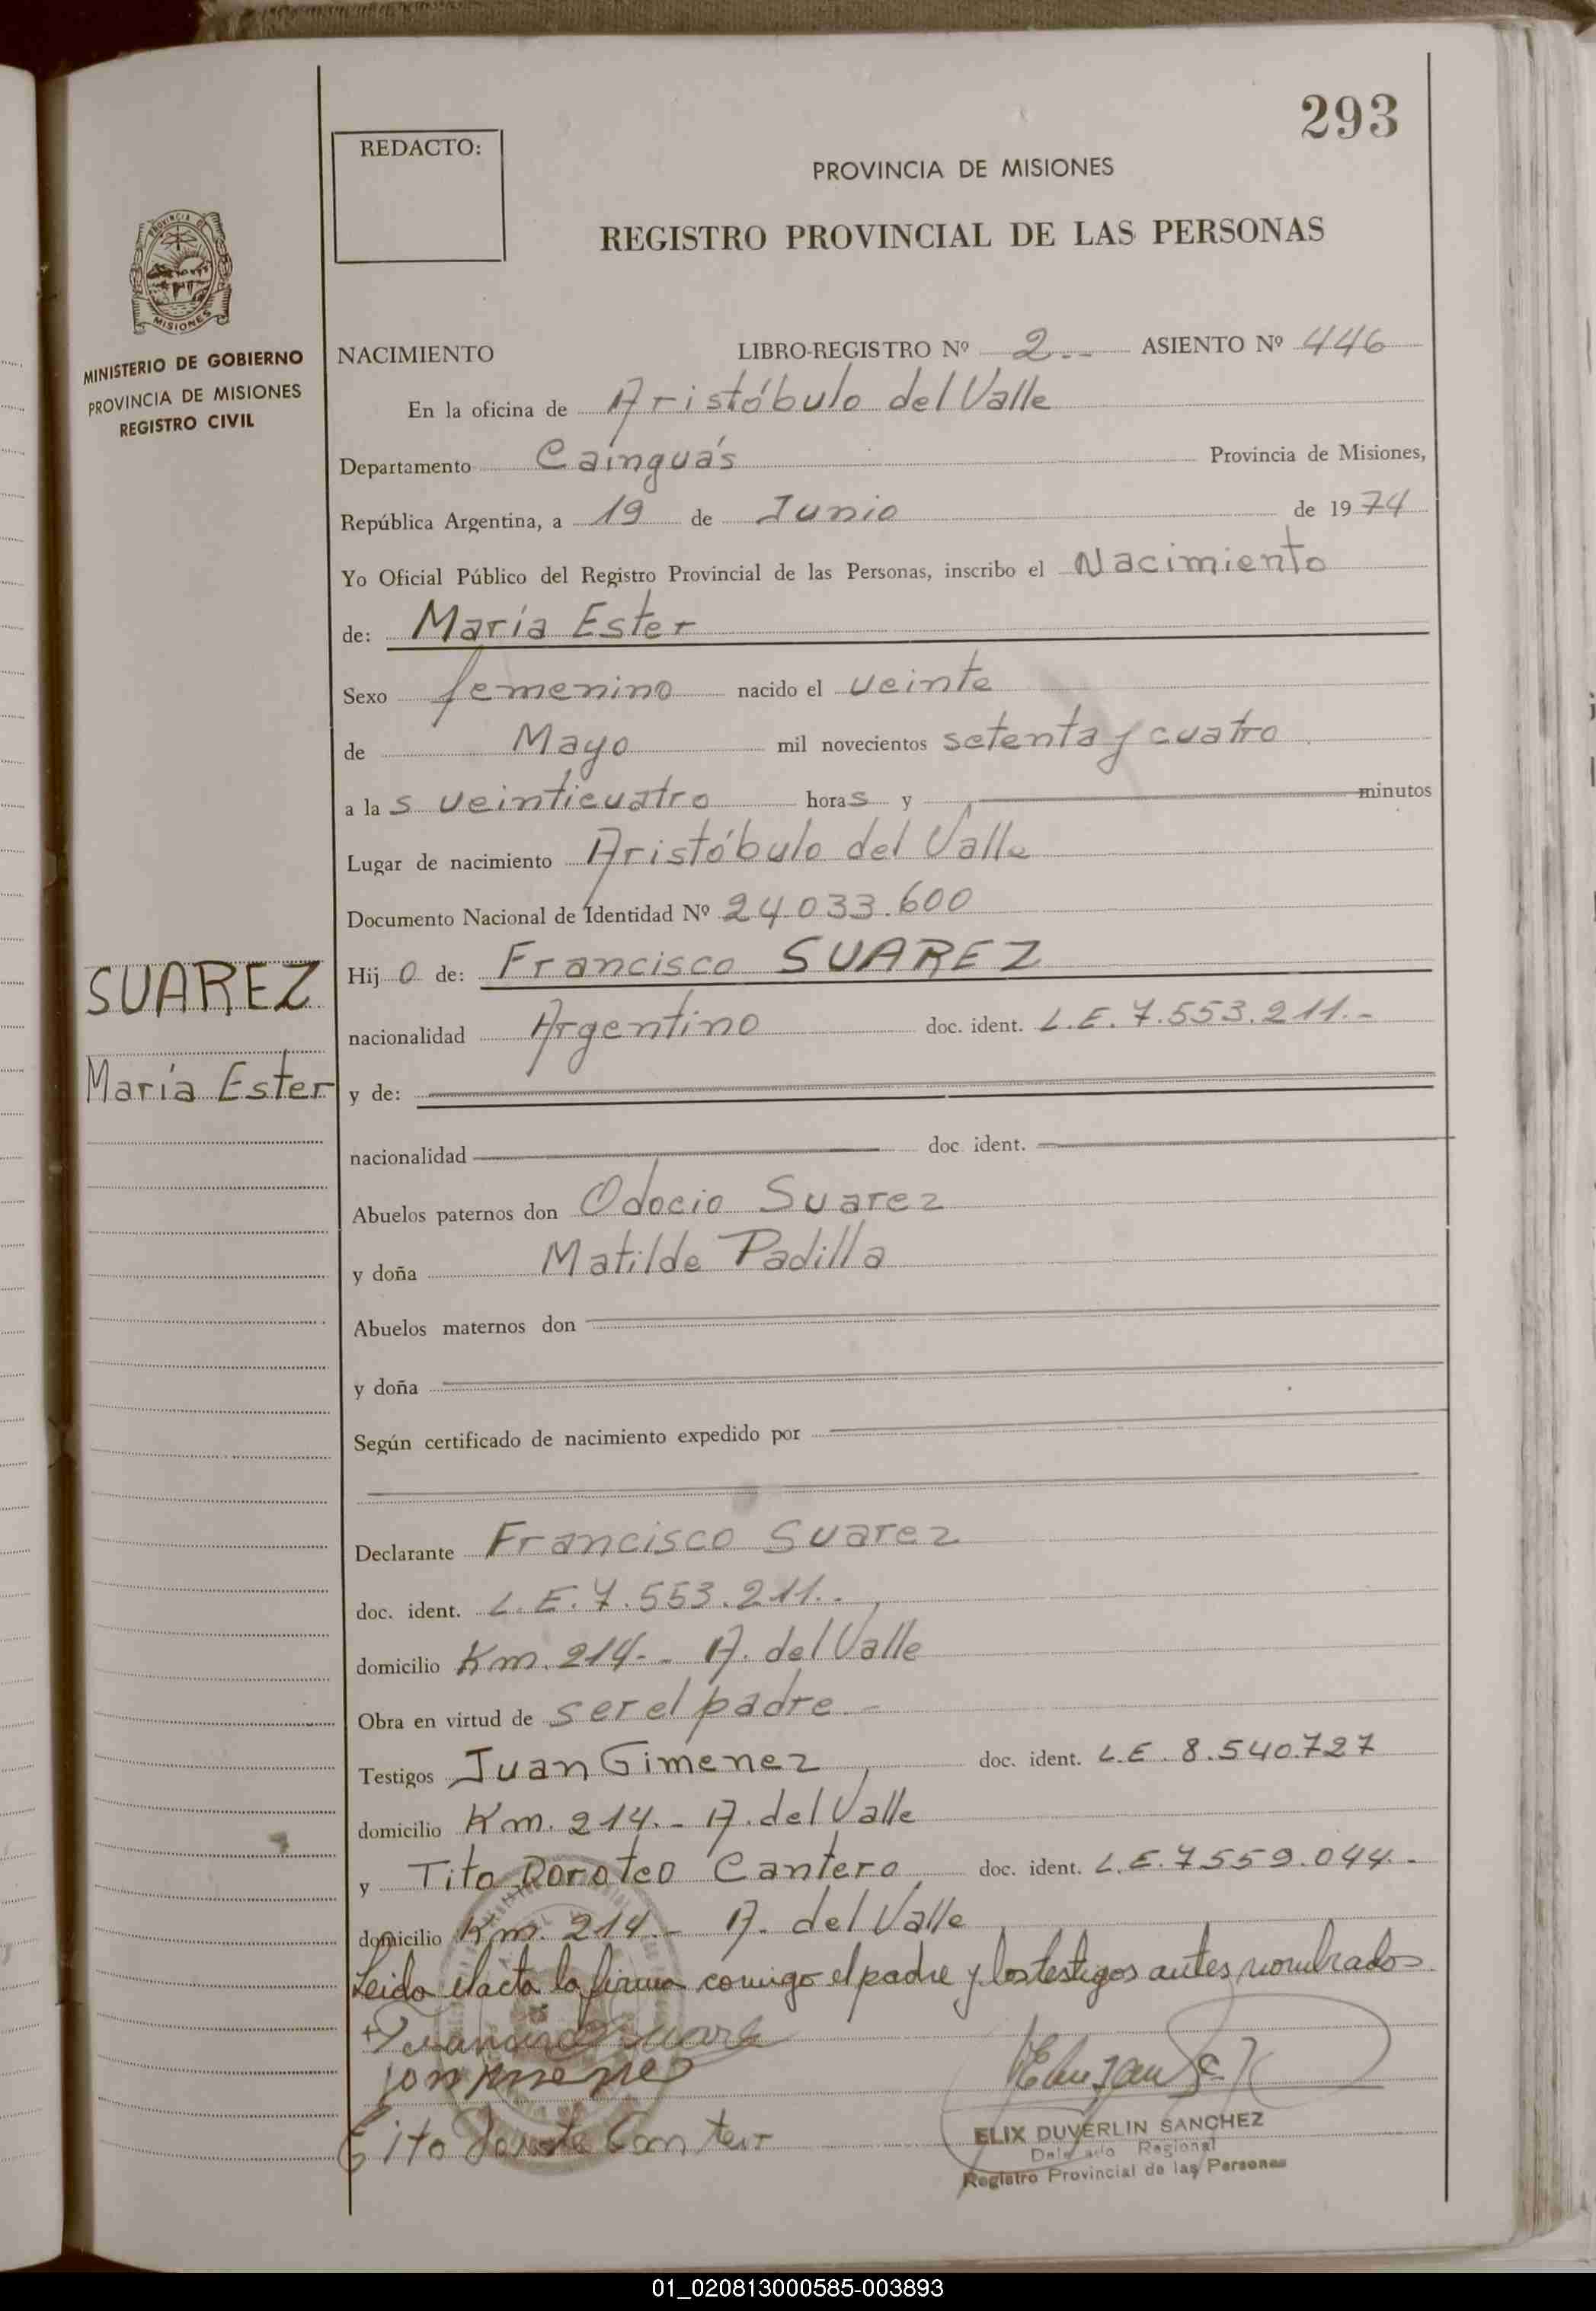 293
REDACTO:
PROVINCIA DE MISIONES
REGISTRO PROVINCIAL DE LAS PERSONAS
PROVINCIA DE
MISIONES
MINISTERIO DE GOBIERNO
PROVINCIA DE MISIONES
REGISTRO CIVIL
NACIMIENTO LIBRO-REGISTRO Nº 2.-- ASIENTO Nº 446
En la oficina de Aristóbulo del Valle
Departamento Cainguás Provincia de Misiones,
República Argentina, a 19 de Junio de 1974
Yo Oficial Público del Registro Provincial de las Personas, inscribo el Nacimiento
de: María Ester
Sexo femenino nacido el veinte
de Mayo mil novecientos setenta y cuatro
a las veinticuatro horas y minutos
Lugar de nacimiento Aristóbulo del Valle
Documento Nacional de Identidad Nº 24.033.600
SUAREZ
María Ester
Hijo de: Francisco SUAREZ
nacionalidad Argentino doc. ident. L.E. 7.553.211.-
y de:
nacionalidad doc. ident.
Abuelos paternos don Odocio Suarez
y doña Matilde Padilla
Abuelos maternos don
y doña
Según certificado de nacimiento expedido por
Declarante Francisco Suarez
doc. ident. L.E. 7.553.211.-
domicilio Km. 214.- A. del Valle
Obra en virtud de ser el padre.-
Testigos Juan Gimenez doc. ident. L.E. 8.540.727
domicilio Km. 214.- A. del Valle
y Tito Doroteo Cantero doc. ident. L.E. 7559.044.-
domicilio Km. 214.- A. del Valle
Leida el acta la firma comigo el padre y los testigos antes nombrados
ELIX DUVERLIN SANCHEZ
Delegado Regional
Registro Provincial de las Personas
01_020813000585-003893